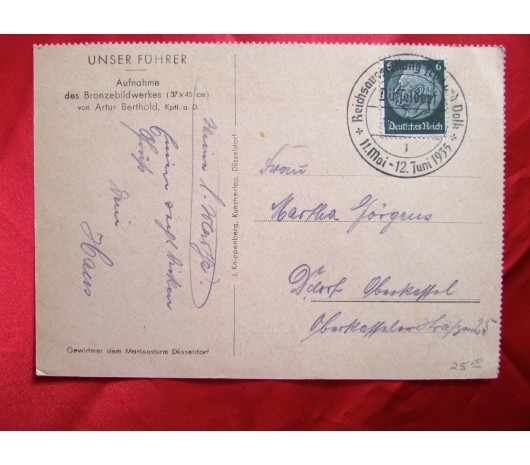 UNSER FÜHRER
Aufnahme
des Bronzebildwerkes (37×45 cm)
von Artur Berthold, Kptl. a. D.
Meine l. Martha!
Einen recht lieben
Gruß
Dein
Hans
Gewidmet dem Marinesturm Düsseldorf
J. Knippenberg, Kunstverlag, Düsseldorf
6 6
Deutsches Reich
Düsseldorf
11. Mai - 12. Juni 1935
1
Frau
Martha Görgens
D.dorf Oberkassel
Oberkasseler Straße 25
25 00